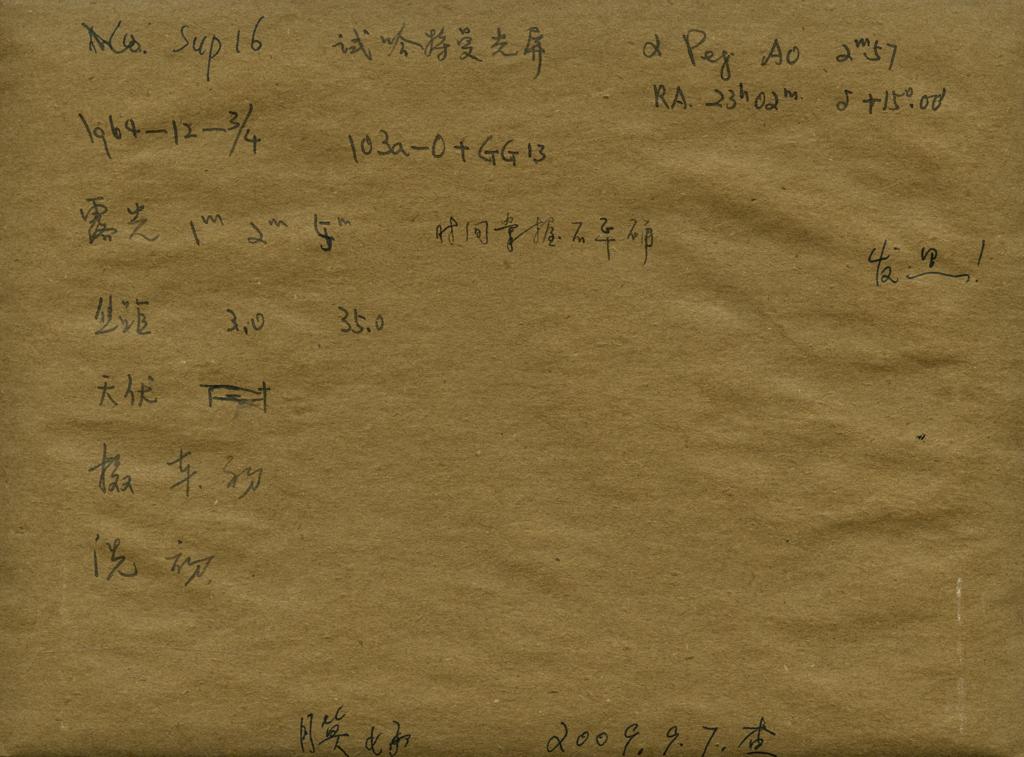 No. Sup 16 试哈特曼光屏 α Peg A0 2ᵐ57
RA. 23ʰ02ᵐ δ +15°.00'
1964-12-3/4 103a-O + GG13
露光 1ᵐ 2ᵐ 5ᵐ 时间掌握不准确
发黑!
丝距 3.0 35.0
天伏
摄 车. 初
洗 初
膜好 2009.9.7.查